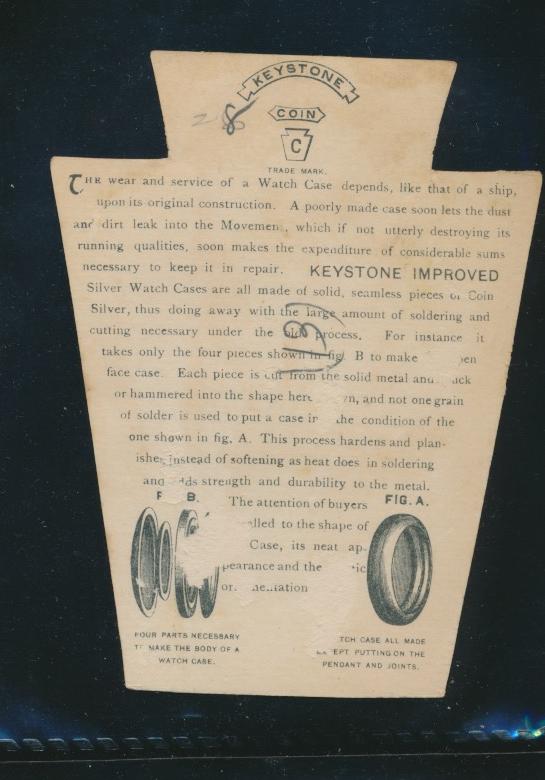 KEYSTONE
COIN
C
TRADE MARK.
THE wear and service of a Watch Case depends, like that of a ship,
upon its original construction. A poorly made case soon lets the dust
and dirt leak into the Movement, which if not utterly destroying its
running qualities, soon makes the expenditure of considerable sums
necessary to keep it in repair. KEYSTONE IMPROVED
Silver Watch Cases are all made of solid, seamless pieces of Coin
Silver, thus doing away with the large amount of soldering and
cutting necessary under the old process. For instance it
takes only the four pieces shown in fig. B to make
face case. Each piece is cut from the solid metal and
or hammered into the shape here and not one grain
of solder is used to put a case in the condition of the
one shown in fig. A. This process hardens and plan-
ishes instead of softening as heat does in soldering
and adds strength and durability to the metal.
B. The attention of buyers FIG. A.
to the shape of
Case, its neat ap-
pearance and the
FOUR PARTS NECESSARY
TO MAKE THE BODY OF A
WATCH CASE.
CASE ALL MADE
EXCEPT PUTTING ON THE
PENDANT AND JOINTS.